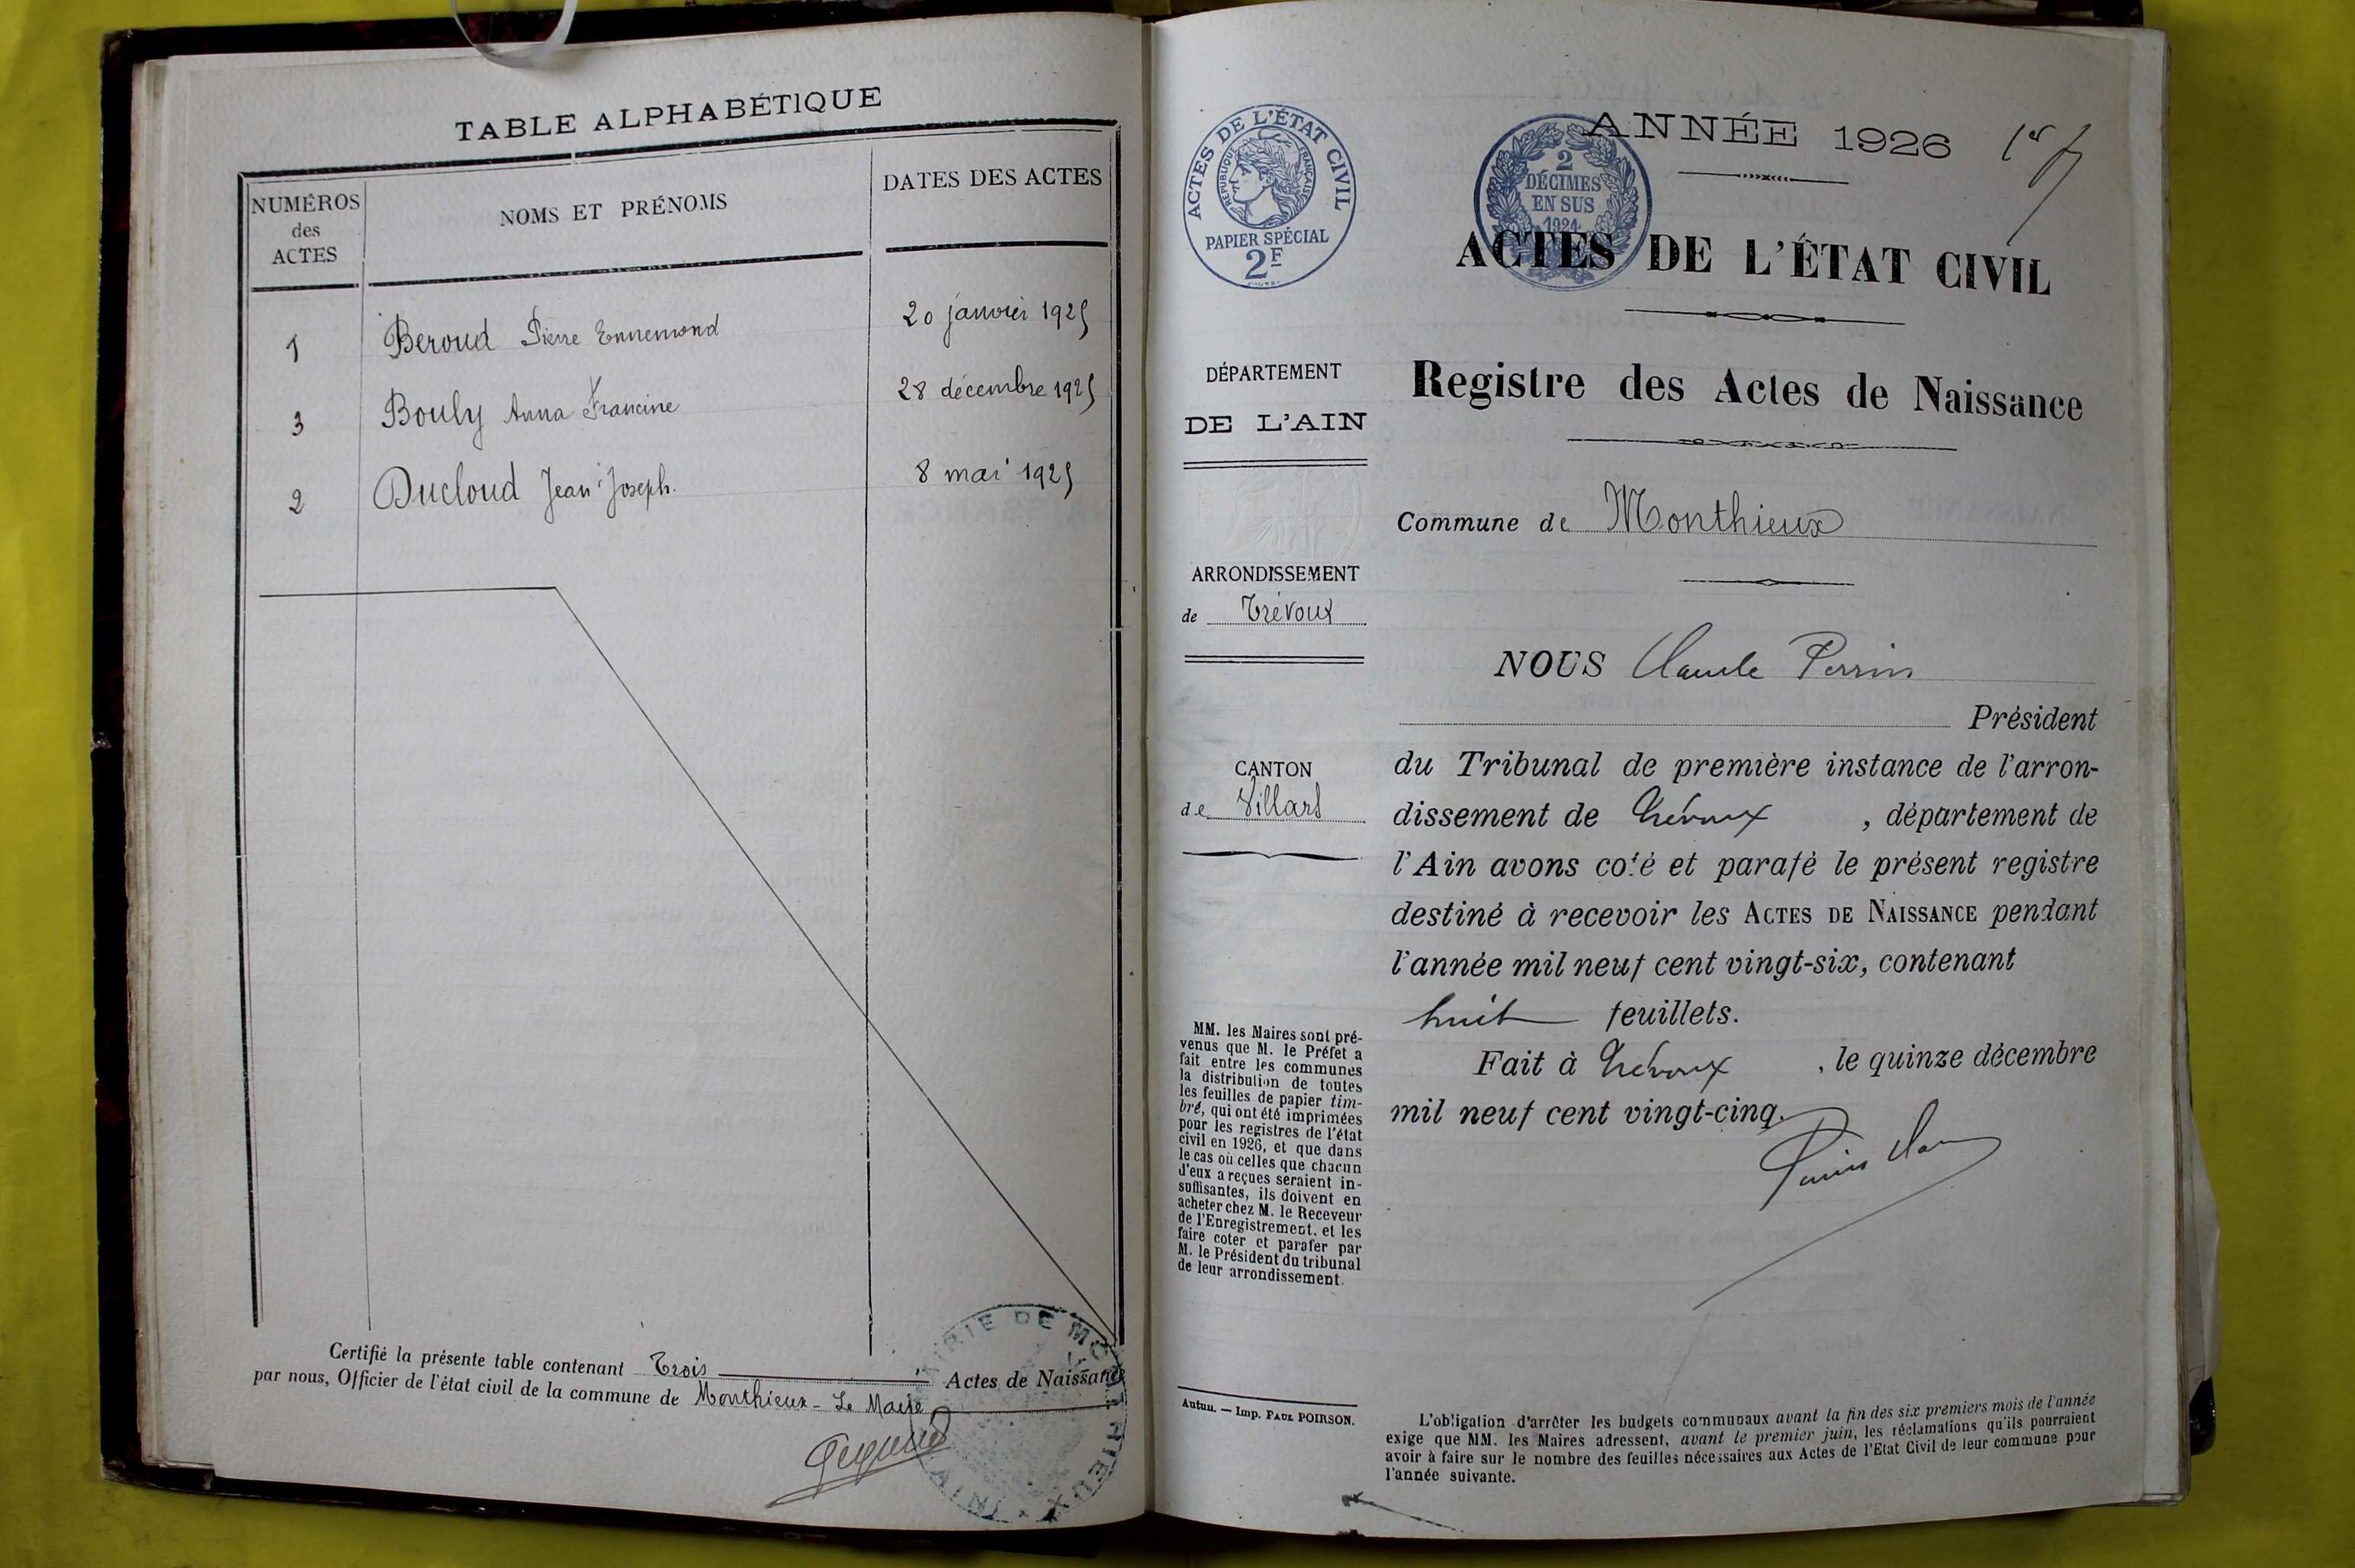 TABLE ALPHABÉTIQUE
NUMÉROS
des
ACTES
NOMS ET PRÉNOMS
DATES DES ACTES
1 Beroud Pierre Ennemond 20 janvier 1925
3 Bouly Anna Francine 28 décembre 1925
2 Ducloud Jean Joseph. 8 mai 1925
Certifié la présente table contenant Trois Actes de Naissance
par nous, Officier de l'état civil de la commune de Monthieux - Le Maire
MAIRIE DE MONTHIEUX
(AIN)
ACTES DE L'ÉTAT CIVIL
RÉPUBLIQUE FRANÇAISE
PAPIER SPÉCIAL
2F
2
DÉCIMES
EN SUS
1924
ANNÉE 1926
1er
ACTES DE L'ÉTAT CIVIL
DÉPARTEMENT
DE L'AIN
ARRONDISSEMENT
de Trévoux
CANTON
de Villars
MM. les Maires sont pré-
venus que M. le Préfet a
fait entre les communes
la distribution de toutes
les feuilles de papier tim-
bré, qui ont été imprimées
pour les registres de l'état
civil en 1926, et que dans
le cas où celles que chacun
d'eux a reçues seraient in-
suffisantes, ils doivent en
acheter chez M. le Receveur
de l'Enregistrement, et les
faire coter et parafer par
M. le Président du tribunal
de leur arrondissement.
Autun. — Imp. PAUL POIRSON.
Registre des Actes de Naissance
Commune de Monthieux
NOUS Claude Perrin
Président
du Tribunal de première instance de l'arron-
dissement de Trévoux , département de
l'Ain avons coté et parafé le présent registre
destiné à recevoir les ACTES DE NAISSANCE pendant
l'année mil neuf cent vingt-six, contenant
huit feuillets.
Fait à Trévoux , le quinze décembre
mil neuf cent vingt-cinq.
L'obligation d'arrêter les budgets communaux avant la fin des six premiers mois de l'année
exige que MM. les Maires adressent, avant le premier juin, les réclamations qu'ils pourraient
avoir à faire sur le nombre des feuilles nécessaires aux Actes de l'Etat Civil de leur commune pour
l'année suivante.